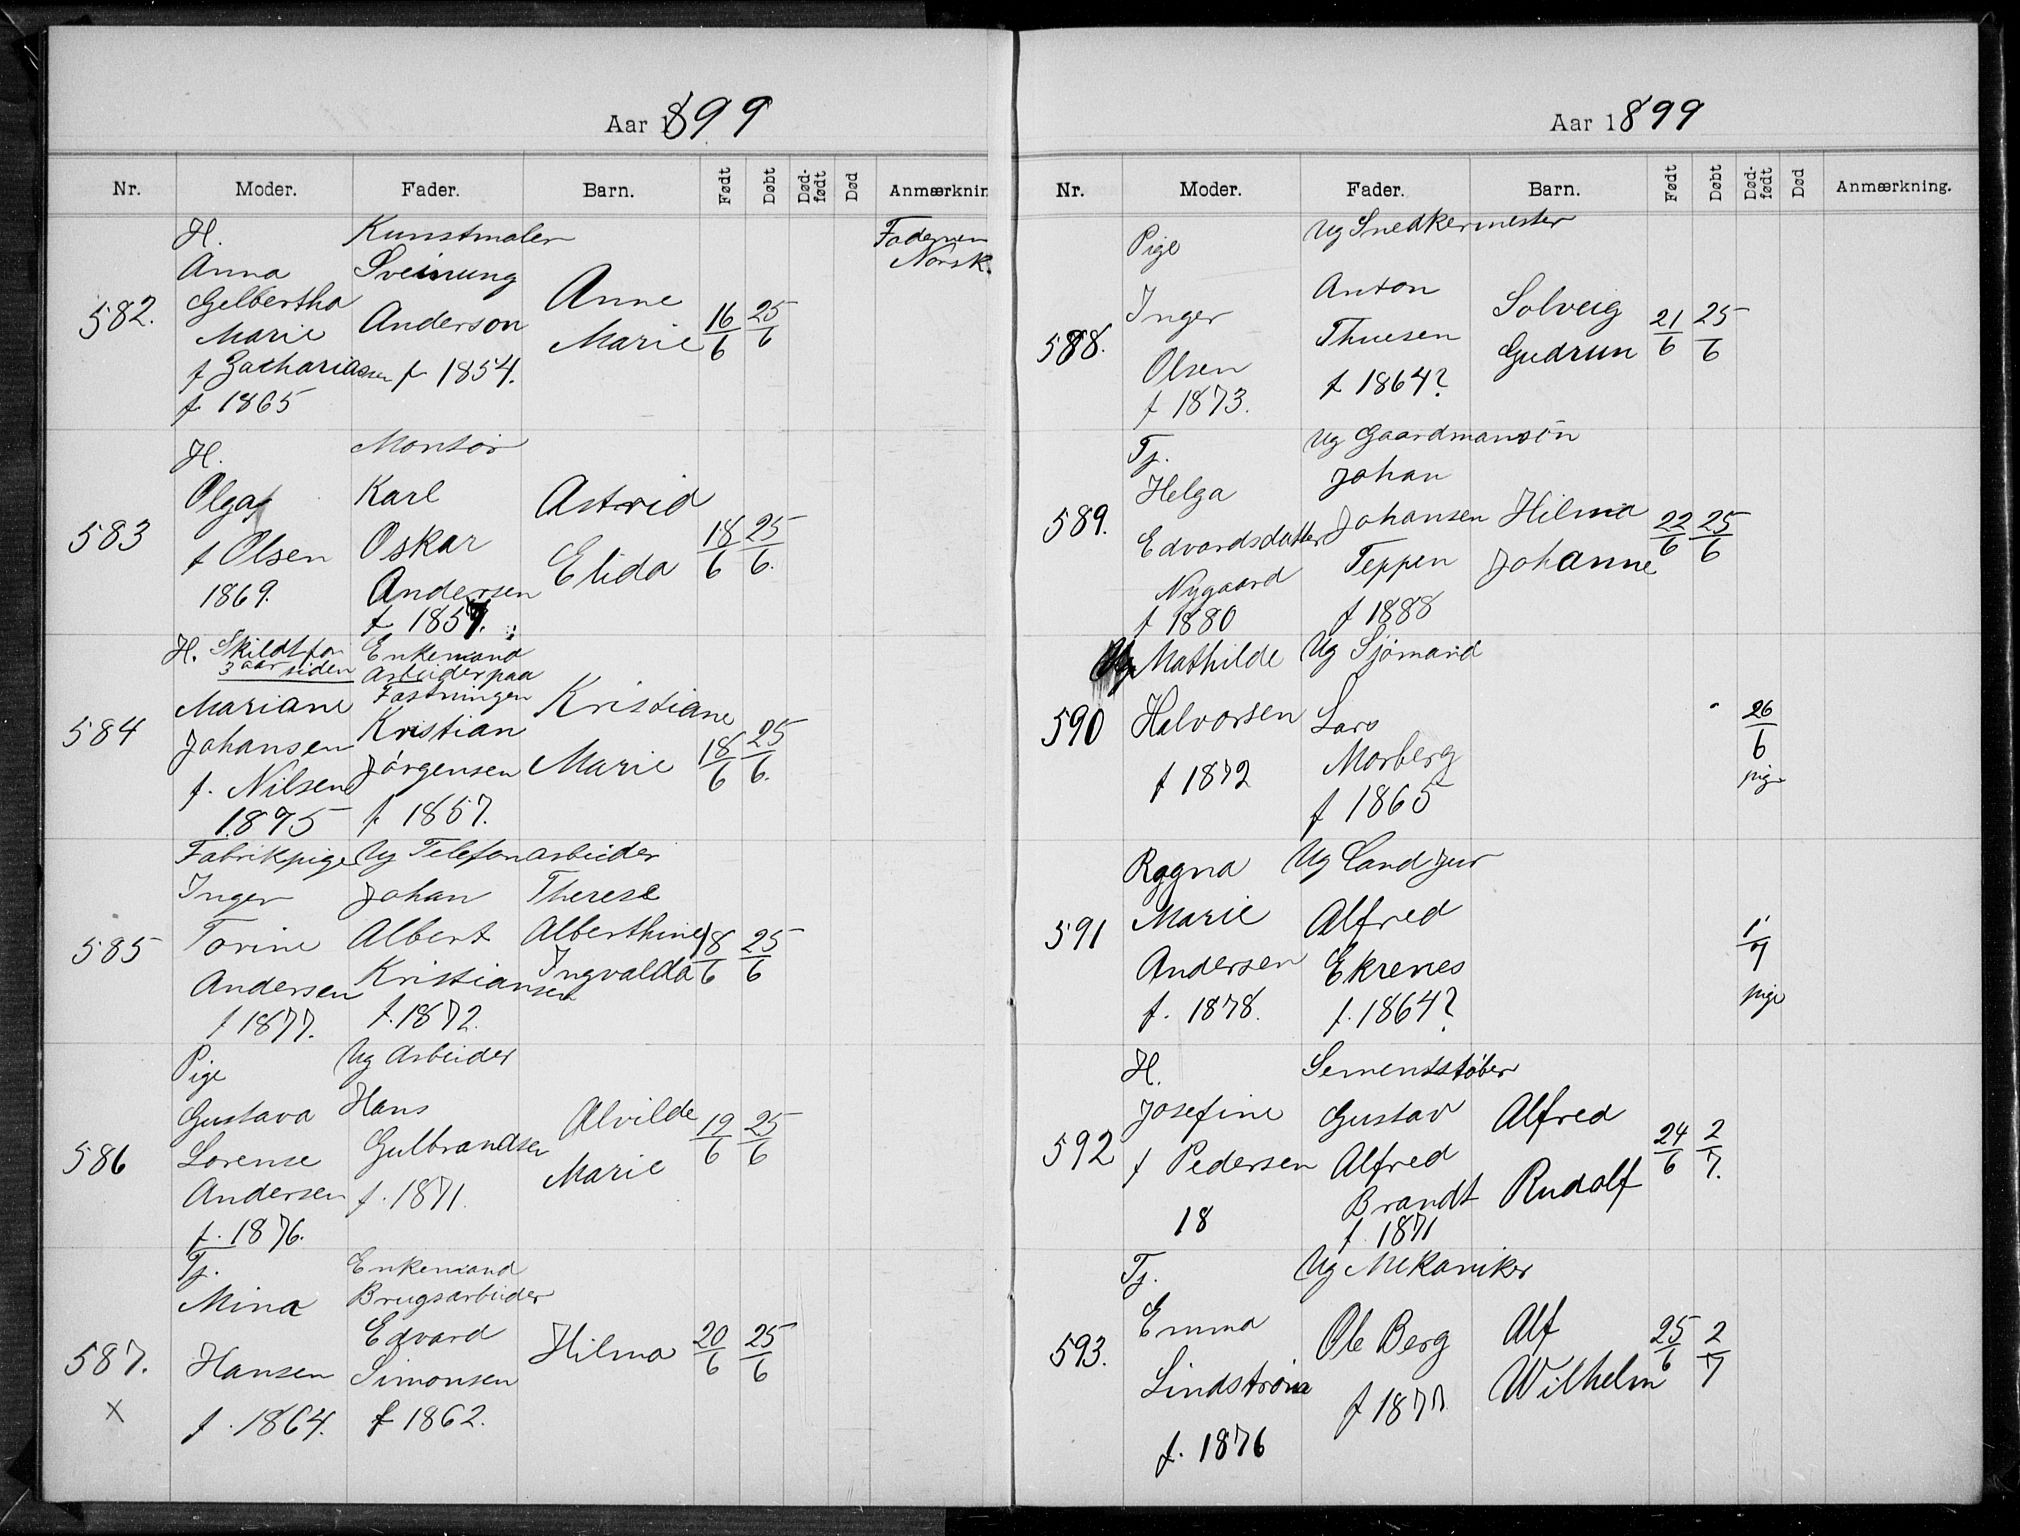 Aar 1899
Nr. Moder. Fader. Barn. Født Døbt Død-født Død Anmærknin
H. Kunstmaler Faderen
Norsk.
Anna Sveinung
582. Gelbertha Anderson Anne 16/6 25/6
Marie Marie
f Zachariassen f 1854.
f 1865
H. Montør
Olga Karl Astrid
583 f Olsen Oskar Elida 18/6 25/6.
1869. Andersen
f 1857.
H. Skildt for Enkemand
3 aar siden Arbeider paa
Fæstningen
Mariane Kristian Kristiane
584 Johansen Jørgensen Marie 18/6 25/6.
f. Nilsen f 1857.
1875
Fabrikpige Ug Telefonarbeider
Inger Johan Therese
585 Torine Albert Alberthine 18/6 25/6
Andersen Kristiansen Ingvalda
f 1877. f. 1872.
Pige Ug Arbeider
Gustava Hans Alvilde
586 Lorense Gulbrandsen Marie 19/6 25/6
Andersen f. 1871.
f. 1876.
Tj. Enkemand
Mina Brugsarbeider
Edvard
587. Hansen Simonsen Hilma 20/6 25/6
X f. 1864. f 1862.
Aar 1899
Nr. Moder. Fader. Barn. Født Døbt Død-født Død Anmærkning.
Pige Ug Snedkermester
Inger Anton Solveig
588. Olsen Thuesen Gudrun 21/6 25/6
f 1873. f 1864?
Tj. Ug Gaardmansøn
Helga Johan
589. Edvardsdatter Johansen Hilma 22/6 25/6
Nygaard Teppen Johanne
f 1880 f 1888
Mathilde Ug Sjømand
590 Halvorsen Lars 26/6
f 1872 Morberg pige
f 1865
Ragna Ug Cand jur
591 Marie Alfred 1/7
Andersen Ekrenes pige
f. 1878. f. 1864?
H. Sementstøber
Josefine Gustav Alfred
592 f Pedersen Alfred Rudolf 24/6 2/7.
18 Brandt
f. 1871
Tj. Ug Mekaniker
593. Emma Ole Berg Alf 25/6 2/7
Lindstrøm f 1877 Wilhelm
f. 1876